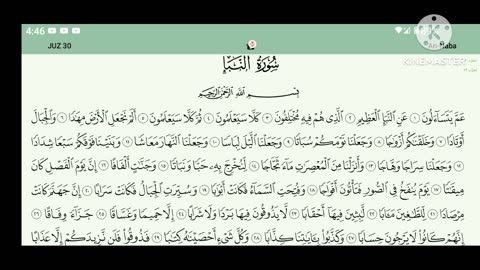 4:46
JUZ 30
An-Naba
KINEMASTER
سُورَةُ النَّبَإِ
بِسْمِ اللَّهِ الرَّحْمَٰنِ الرَّحِيمِ
عَمَّ يَتَسَآءَلُونَ ١ عَنِ ٱلنَّبَإِ ٱلۡعَظِيمِ ٢ ٱلَّذِي هُمۡ فِيهِ مُخۡتَلِفُونَ ٣ كَلَّا سَيَعۡلَمُونَ ٤ ثُمَّ كَلَّا سَيَعۡلَمُونَ ٥ أَلَمۡ نَجۡعَلِ ٱلۡأَرۡضَ مِهَٰدٗا ٦ وَٱلۡجِبَالَ
أَوۡتَادٗا ٧ وَخَلَقۡنَٰكُمۡ أَزۡوَٰجٗا ٨ وَجَعَلۡنَا نَوۡمَكُمۡ سُبَاتٗا ٩ وَجَعَلۡنَا ٱلَّيۡلَ لِبَاسٗا ١٠ وَجَعَلۡنَا ٱلنَّهَارَ مَعَاشٗا ١١ وَبَنَيۡنَا فَوۡقَكُمۡ سَبۡعٗا شِدَادٗا
١٢ وَجَعَلۡنَا سِرَاجٗا وَهَّاجٗا ١٣ وَأَنزَلۡنَا مِنَ ٱلۡمُعۡصِرَٰتِ مَآءٗ ثَجَّاجٗا ١٤ لِّنُخۡرِجَ بِهِۦ حَبّٗا وَنَبَاتٗا ١٥ وَجَنَّٰتٍ أَلۡفَافًا ١٦ إِنَّ يَوۡمَ ٱلۡفَصۡلِ كَانَ
مِيقَٰتٗا ١٧ يَوۡمَ يُنفَخُ فِي ٱلصُّورِ فَتَأۡتُونَ أَفۡوَاجٗا ١٨ وَفُتِحَتِ ٱلسَّمَآءُ فَكَانَتۡ أَبۡوَٰبٗا ١٩ وَسُيِّرَتِ ٱلۡجِبَالُ فَكَانَتۡ سَرَابًا ٢٠ إِنَّ جَهَنَّمَ كَانَتۡ
مِرۡصَادٗا ٢١ لِّلطَّٰغِينَ مَـَٔابٗا ٢٢ لَّٰبِثِينَ فِيهَآ أَحۡقَابٗا ٢٣ لَّا يَذُوقُونَ فِيهَا بَرۡدٗا وَلَا شَرَابًا ٢٤ إِلَّا حَمِيمٗا وَغَسَّاقٗا ٢٥ جَزَآءٗ وِفَاقًا ٢٦
إِنَّهُمۡ كَانُواْ لَا يَرۡجُونَ حِسَابٗا ٢٧ وَكَذَّبُواْ بِـَٔايَٰتِنَا كِذَّابٗا ٢٨ وَكُلَّ شَيۡءٍ أَحۡصَيۡنَٰهُ كِتَٰبٗا ٢٩ فَذُوقُواْ فَلَن نَّزِيدَكُمۡ إِلَّا عَذَابًا